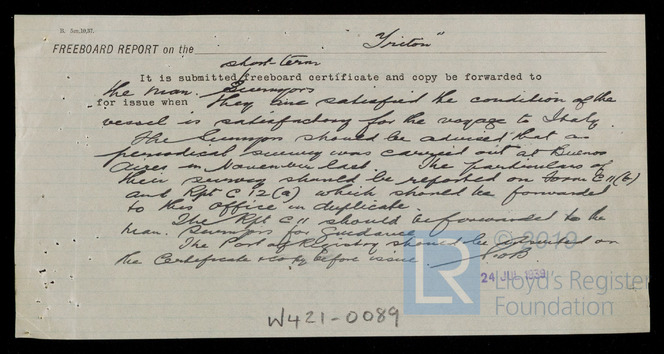 D. 5m.10,37.
FREEBOARD REPORT on the "Triton"
short term
It is submitted freeboard certificate and copy be forwarded to
the Man. Surveyors
for issue when they are satisfied the condition of the
vessel is satisfactory for the voyage to Italy.
The Surveyors should be advised that as
periodical survey was carried out at Buenos
Aires in November last. The particulars of
their survey should be reported on form C 11(b)
and Rpt C 12(a) which should be forwarded
to this office in duplicate.
The Rpt C 11 should be forwarded to the
Man. Surveyors for guidance.
The Port of Registry should be inserted on
the Certificate & copy before issue
24 JUL 1939
© 2019
LR
Lloyd's Register
Foundation
W421-0089